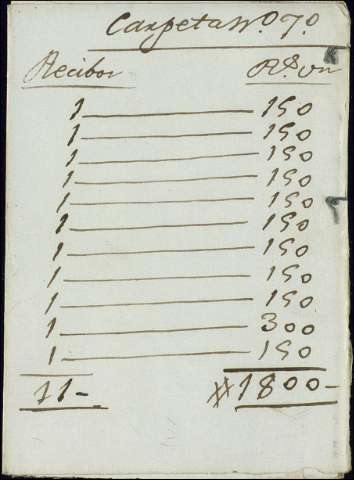 Carpeta Nº 7º
Recibos Rs. vn
1 150
1 150
1 150
1 150
1 150
1 150
1 150
1 150
1 150
1 300
1 150
11- #1800-